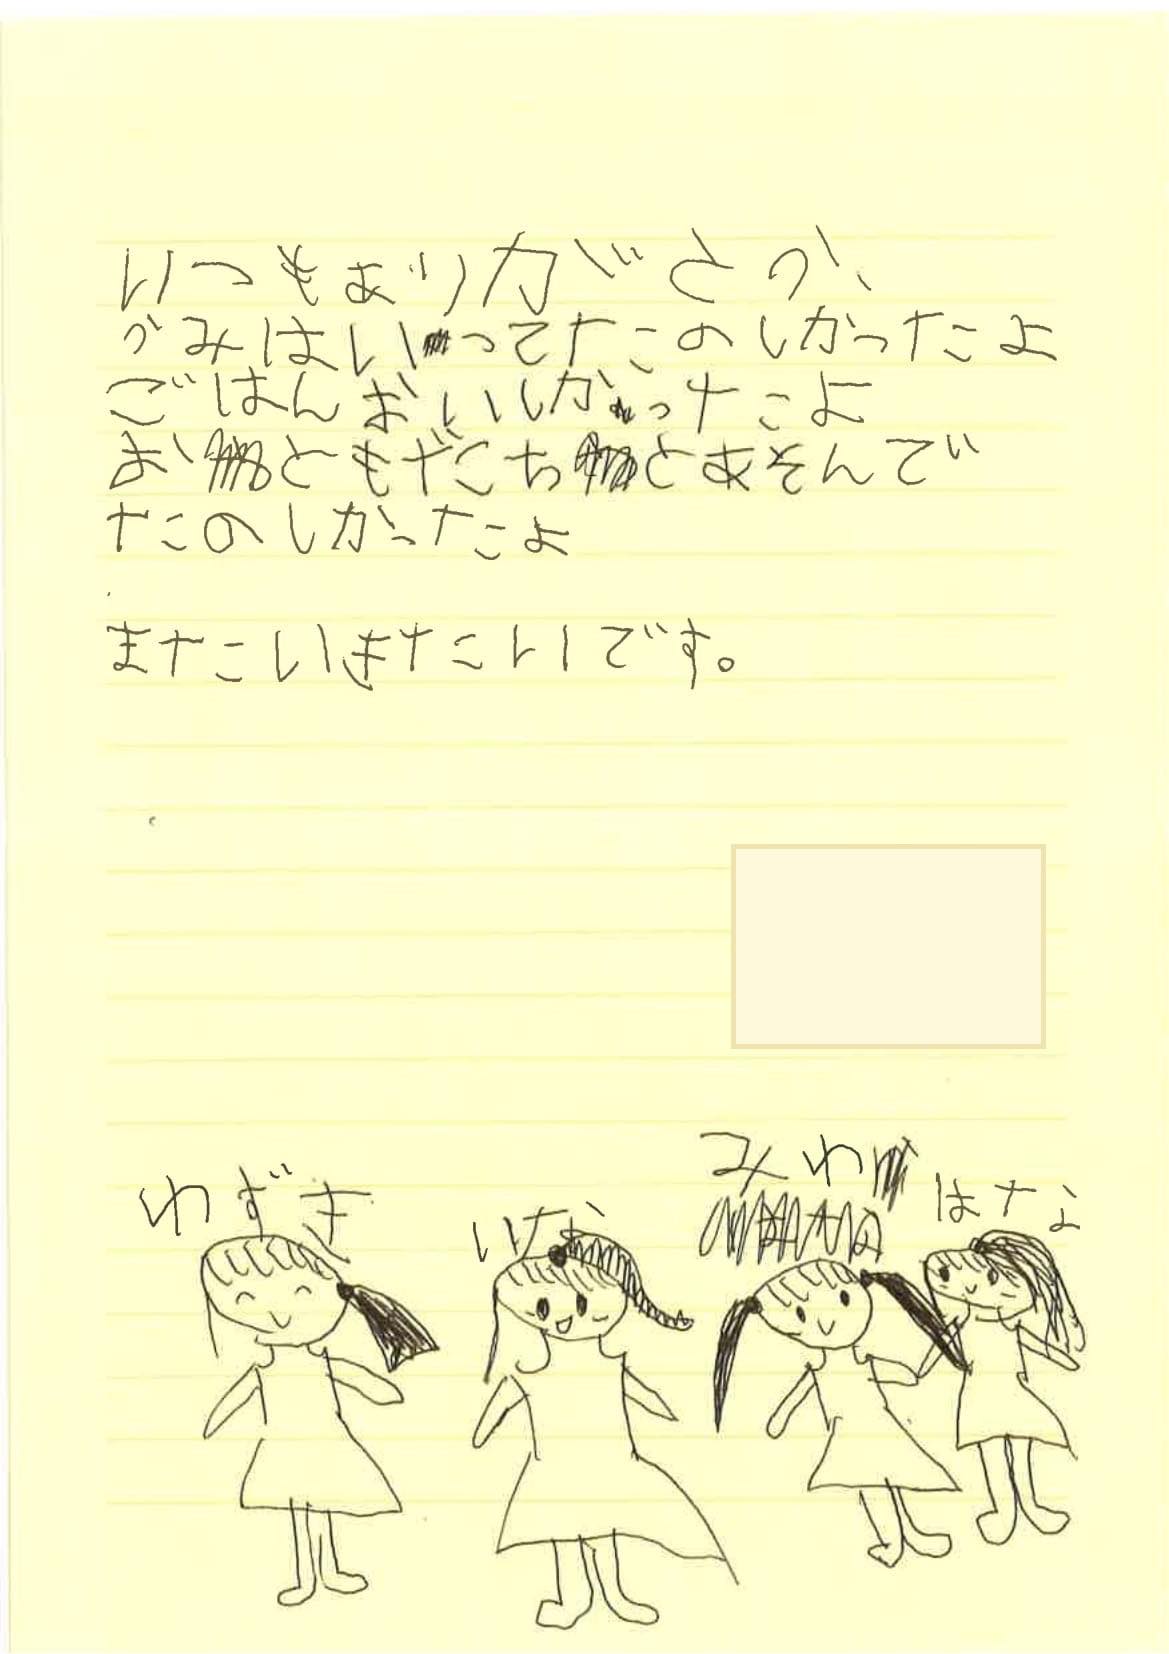 いつもありがとう、
がみはいってたのしかったよ
ごはんおいしかったよ
おともだちとあそんで
たのしかったよ
またいきたいです。
みわ
はな
わずき
いな